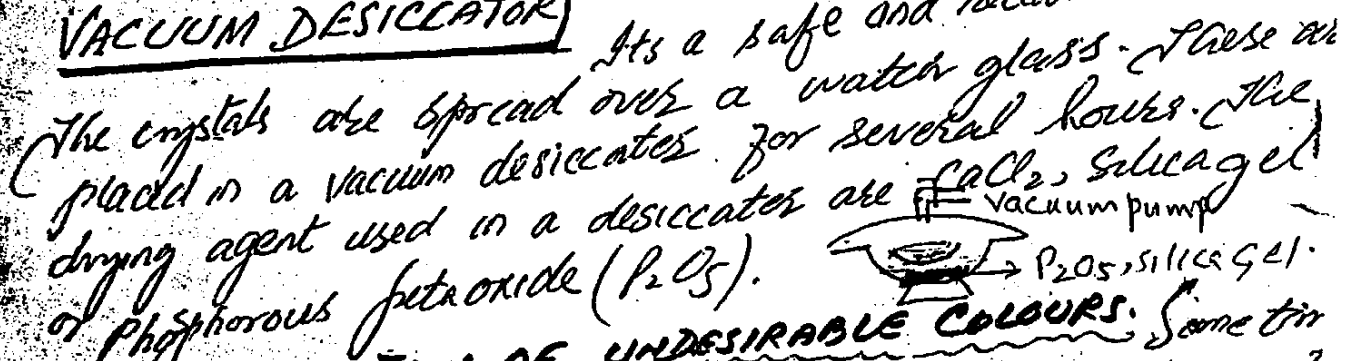 VACUUM DESICCATOR
Its a safe and
The crystals are spread over a watch glass. These are
placed in a vacuum desiccator for several hours. The
drying agent used in a desiccator are CaCl2, Silica gel
Vacuum pump
or phosphorous petaoxide (P2O5).
P2O5, silica gel.
OF UNDESIRABLE COLOURS. Some tim